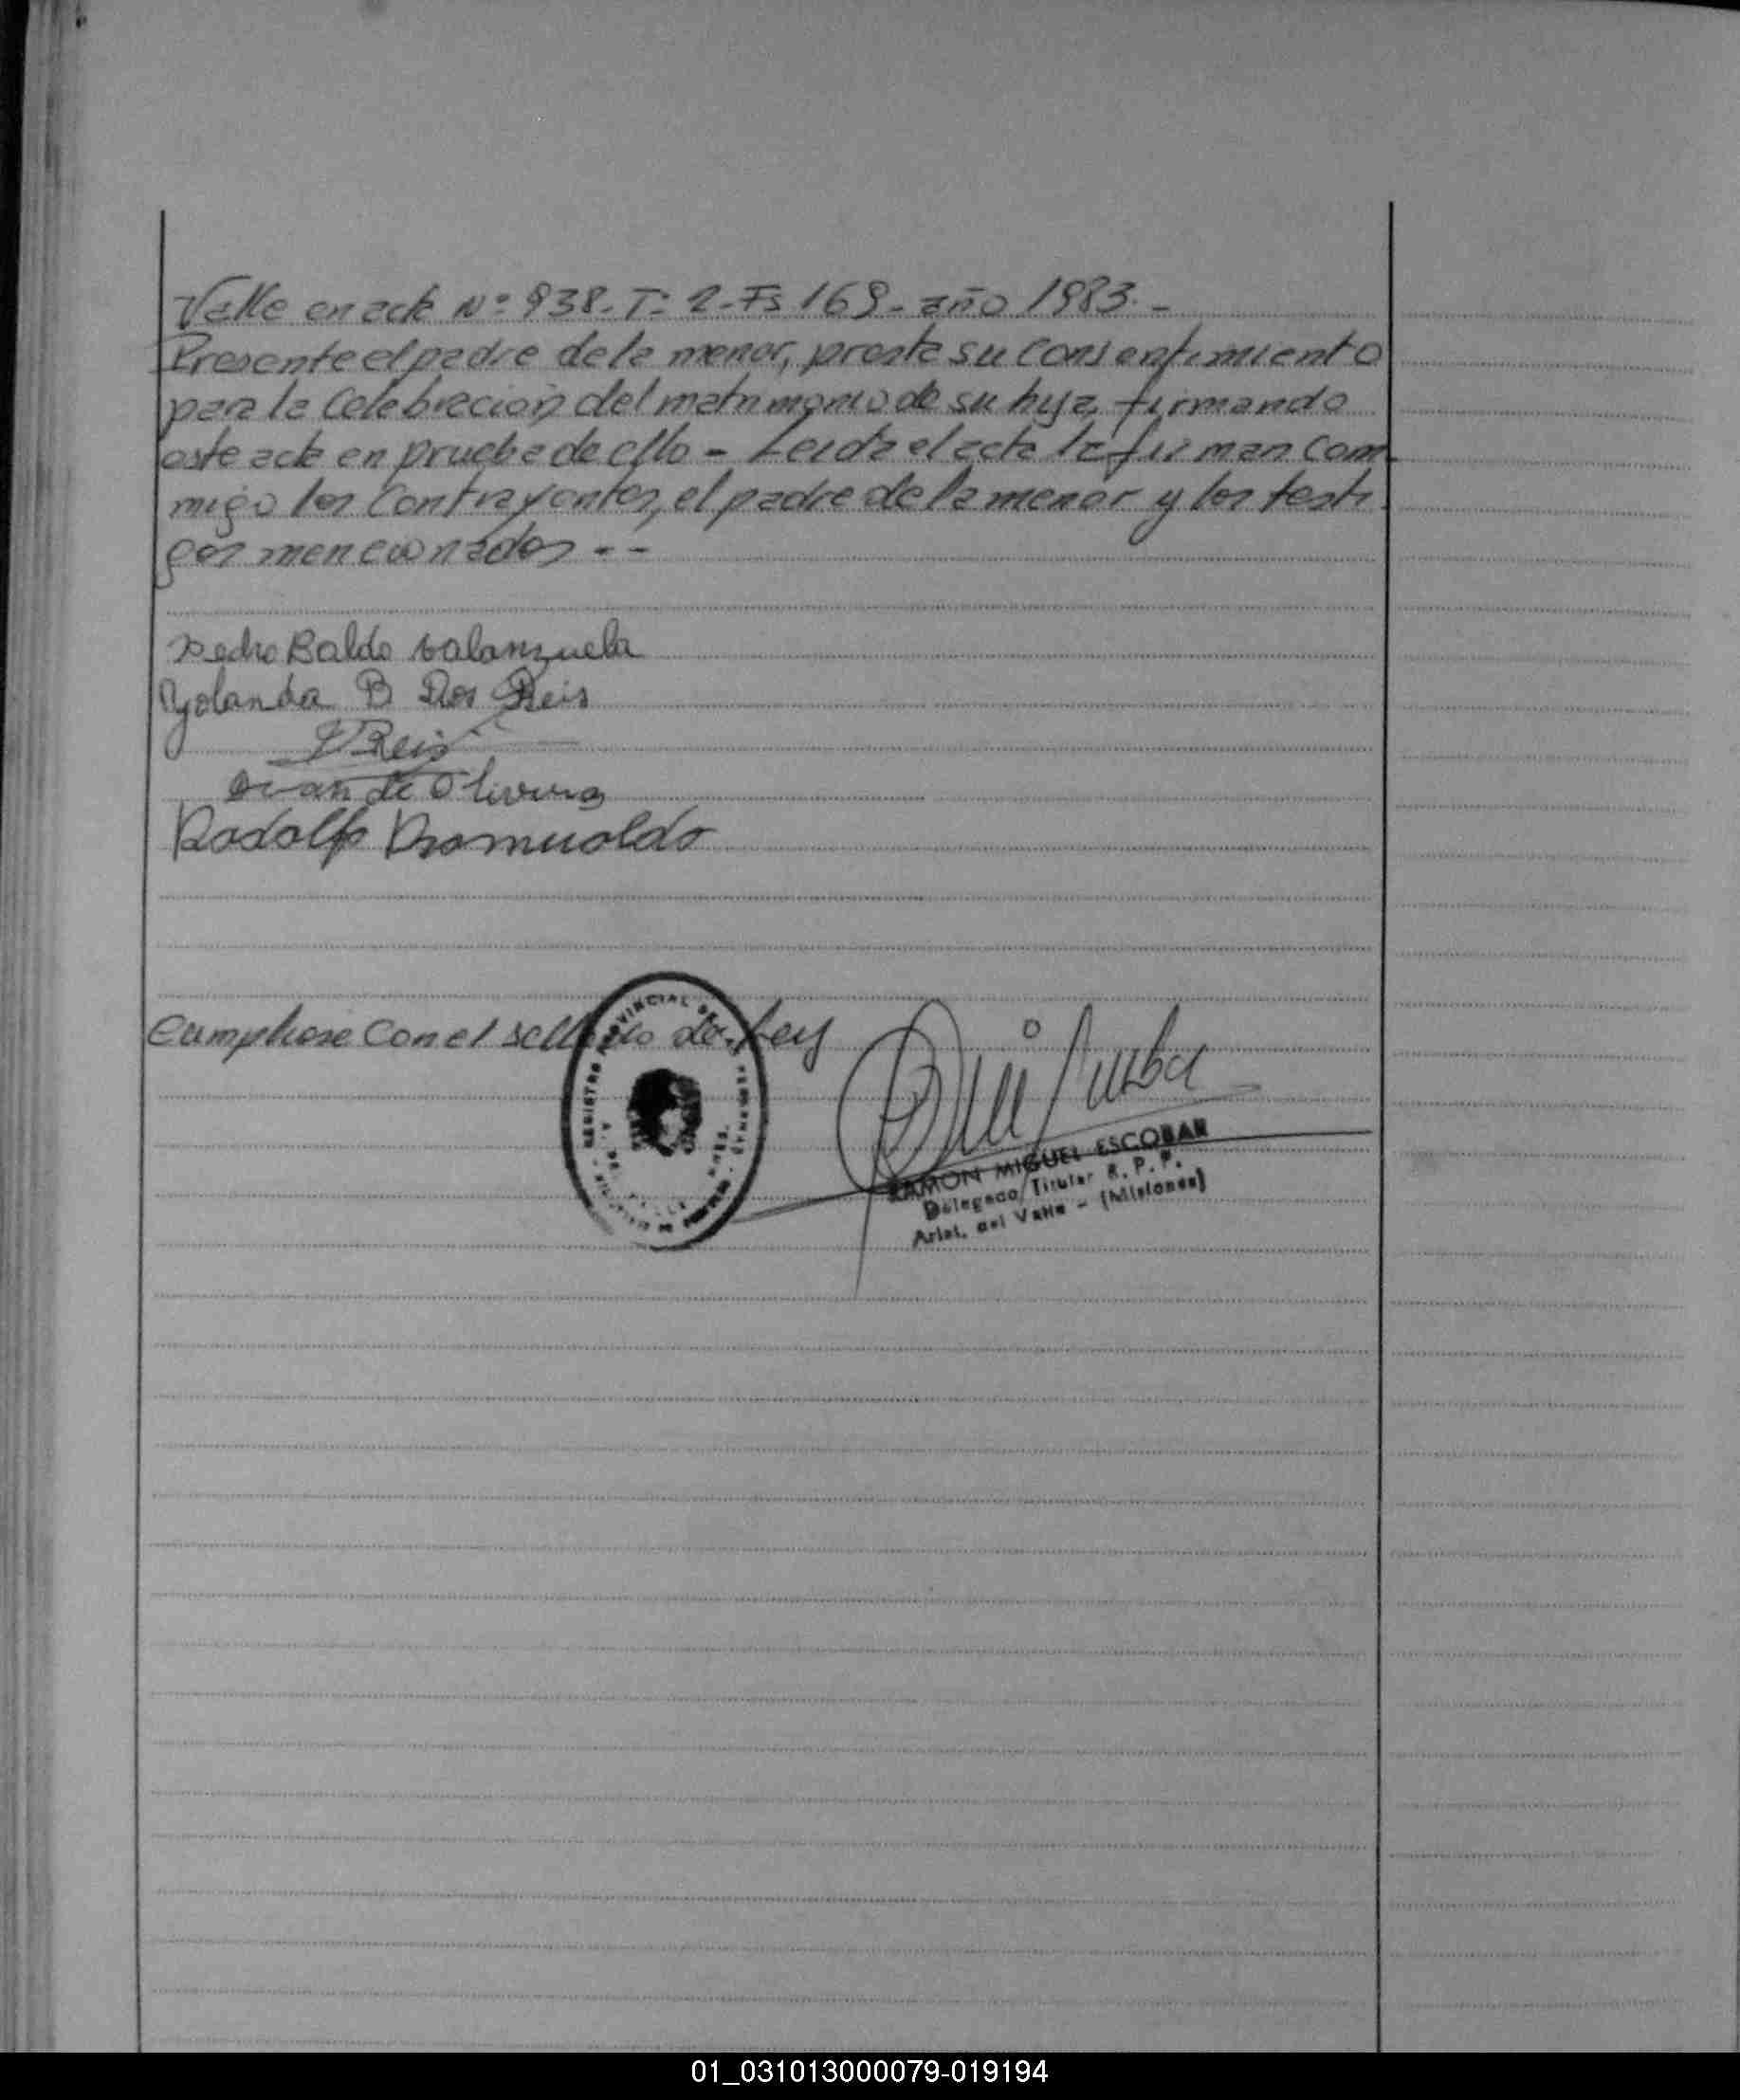 Valle en acta Nº 938-T: 2-Fs 169-año 1983.-
Presente el padre de la menor, presta su consentimiento
para la celebracion del matrimonio de su hija, firmando
este acta en prueba de ello - Leida el acta la firman con-
migo los contrayentes, el padre de la menor y los testi
gos mencionados --
Pedro Baldo Valanzuela
Yolanda B Dos Reis
Reis
Ivan de Olivera
Rodolfo Romualdo
Cumplase con el sellado de Ley
REGISTRO PROVINCIAL DE LAS PERSONAS
RAMON MIGUEL ESCOBAR
Delegado Titular R. P. P.
Arist. del Valle - (Misiones)
01_031013000079-019194